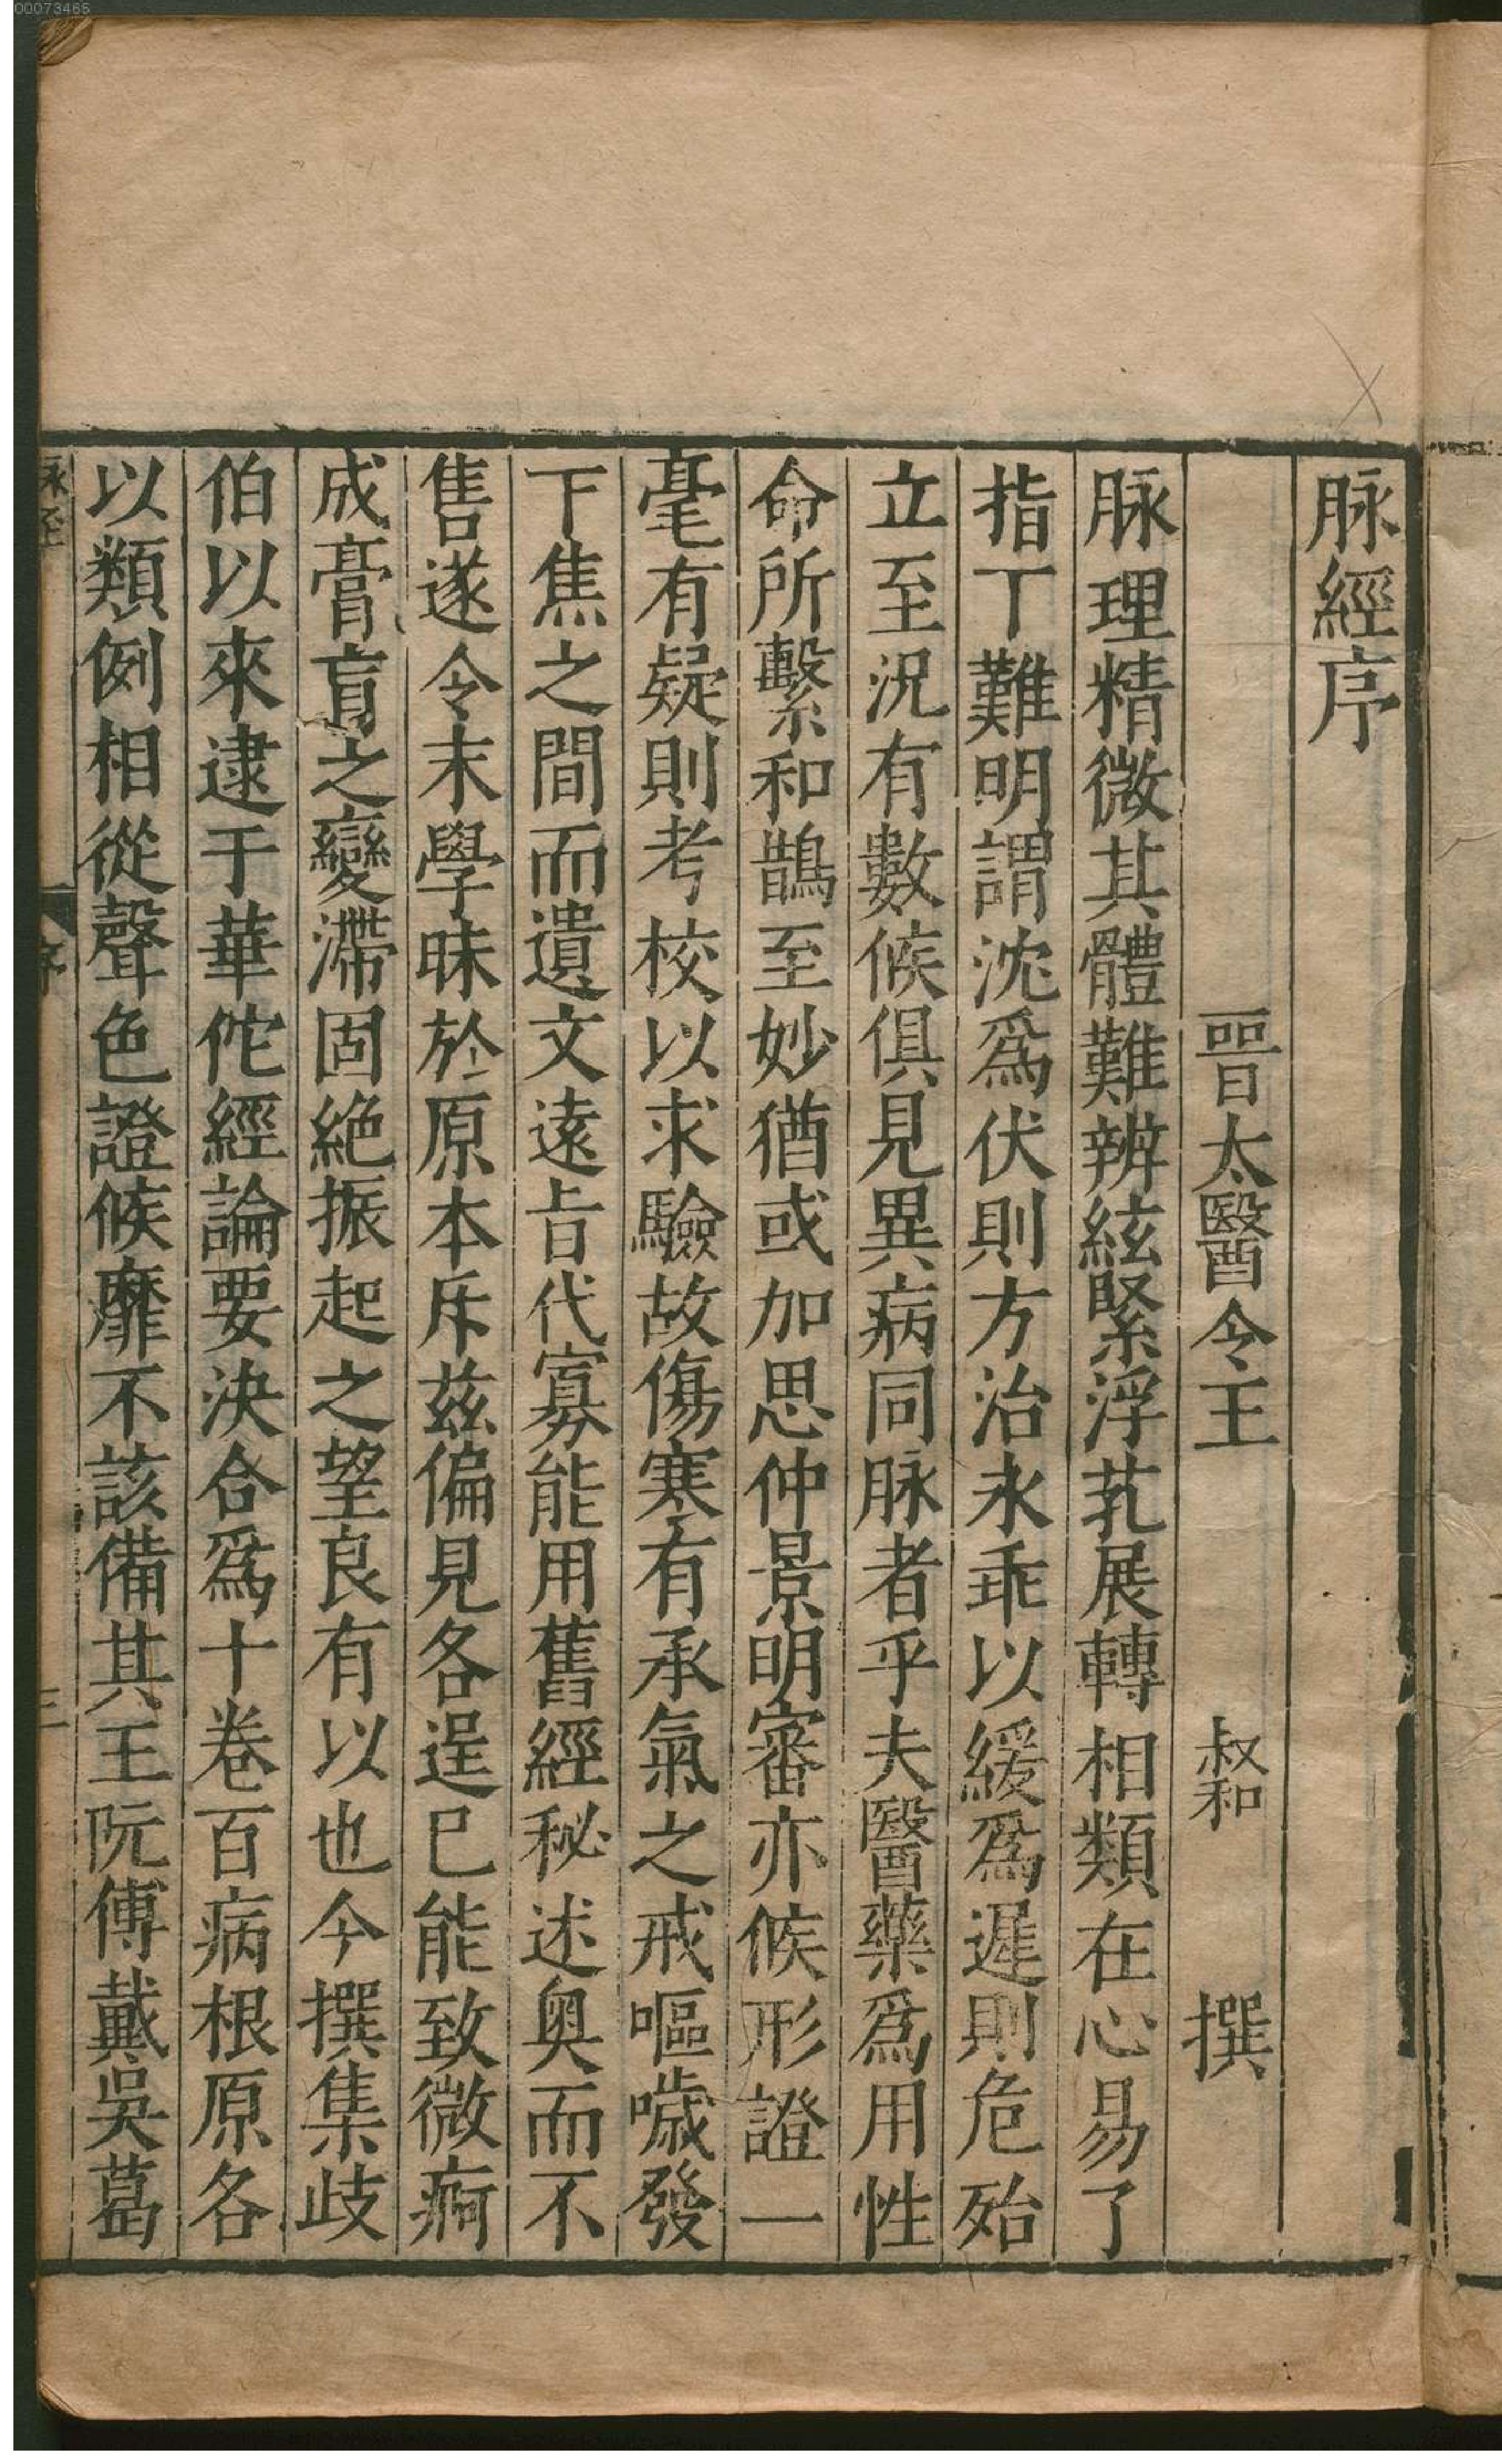 00073465
脉經序
晉太醫令王 叔和 撰
脉理精微其體難辨絃緊浮芤展轉相類在心易了
指下難明謂沈爲伏則方治永乖以緩爲遲則危殆
立至況有數候俱見異病同脉者乎夫醫藥爲用性
命所繫和鵲至妙猶或加思仲景明審亦候形證一
毫有疑則考校以求驗故傷寒有承氣之戒嘔噦發
下焦之間而遺文遠旨代寡能用舊經秘述奥而不
售遂令末學昧於原本斥兹偏見各逞已能致微痾
成膏肓之變滯固絶振起之望良有以也今撰集歧
伯以來逮于華佗經論要決合爲十卷百病根原各
以類例相從聲色證候靡不該備其王阮傅戴吳葛
脉經 序 三